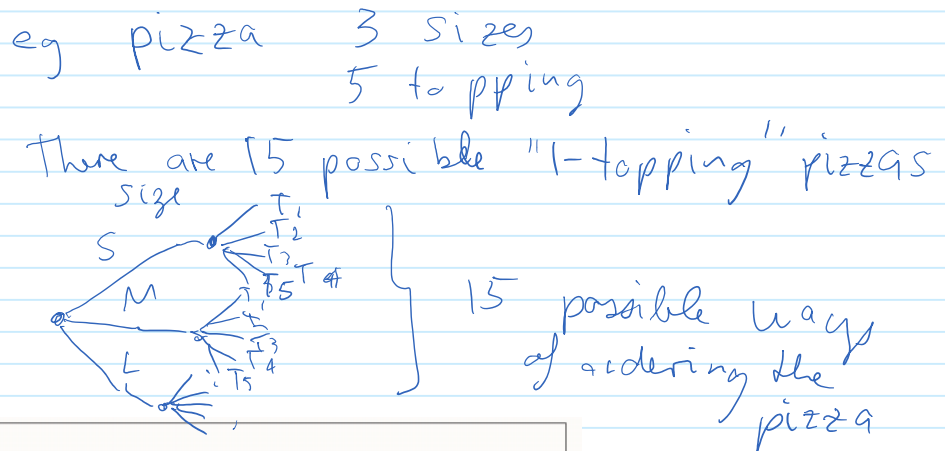 eg pizza 3 sizes
5 topping
There are 15 possible "1-topping" pizzas
size
S
M
L
T1
T2
T3
T4
T5
T3
T4
T5
15 possible ways
of ordering the
pizza